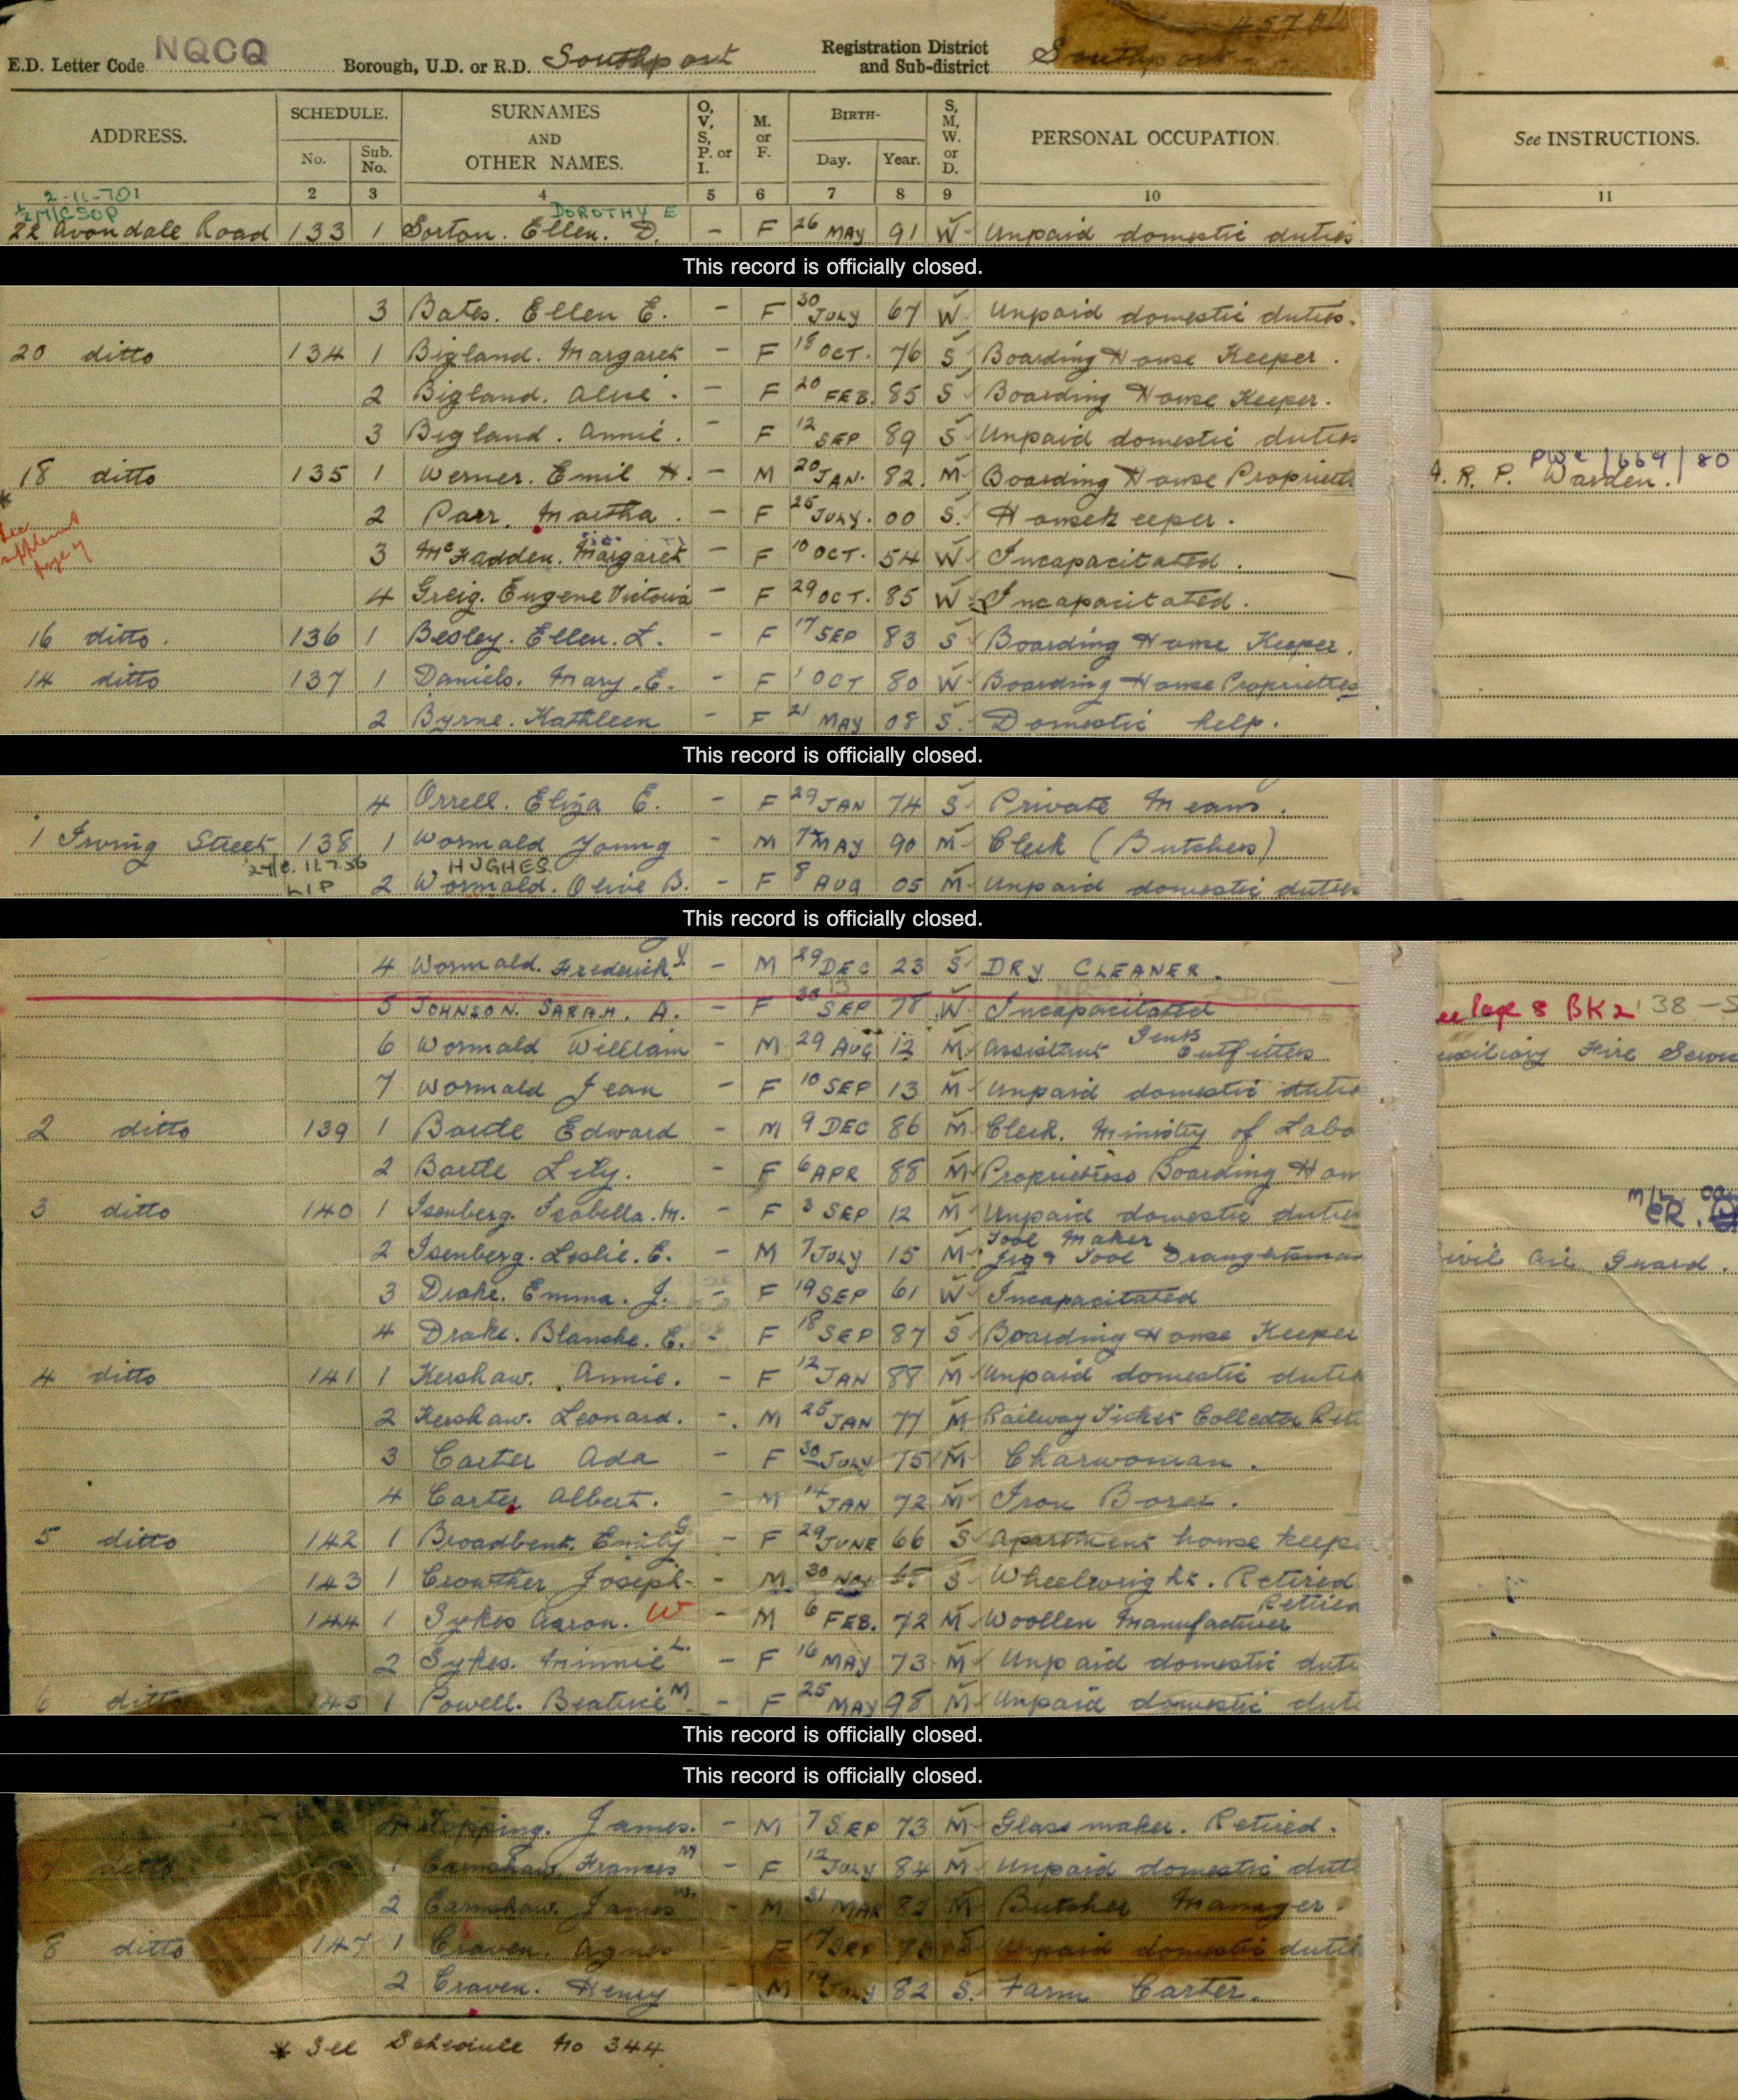 E.D. Letter Code NQCQ Borough, U.D. or R.D. Southport Registration District and Sub-district Southport
ADDRESS. SCHEDULE. No. Sub. No. SURNAMES AND OTHER NAMES. O, V, S, P. or I. M. or F. BIRTH- Day. Year. S, M, W. or D. PERSONAL OCCUPATION. See INSTRUCTIONS.
2 3 4 5 6 7 8 9 10 11
DOROTHY E
22 Avondale Road 133 1 Sorton. Ellen. D. - F 26 MAY 91 W Unpaid domestic duties
This record is officially closed.
3 Bates. Ellen E. - F 30 JULY 67 W Unpaid domestic duties.
20 ditto 134 1 Bigland. Margaret - F 18 OCT. 76 S Boarding House Keeper.
2 Bigland. Alice. - F 20 FEB. 85 S Boarding House Keeper.
3 Bigland. Annie. - F 12 SEP 89 S Unpaid domestic duties
18 ditto 135 1 Werner. Emil H. - M 20 JAN. 82. M Boarding House Propriet A. R. P. Warden.
2 Parr. Martha. - F 25 JULY. 00 S. Housekeeper.
See supplement page 7
3 McFadden. Margaret - F 10 OCT. 54 W Incapacitated.
4 Greig. Eugene Victoria - F 29 OCT. 85 W Incapacitated.
16 ditto. 136 1 Besley. Ellen. L. - F 17 SEP 83 S Boarding House Keeper.
14 ditto 137 1 Daniels. Mary. E. - F 1 OCT 80 W Boarding House Proprietress
2 Byrne. Kathleen - F 21 MAY 08 S. Domestic help.
This record is officially closed.
4 Orrell. Eliza E. - F 29 JAN 74 S Private Means.
1 Irving Street 138 1 Wormald Young - M 7 MAY 90 M Clerk (Butchers)
HUGHES.
2 Wormald. Olive B. - F 8 AUG 05 M Unpaid domestic duties
This record is officially closed.
4 Wormald. Frederick Y - M 29 DEC 23 S DRY CLEANER.
5 JOHNSON. SARAH. A. - F 30 SEP 78 W Incapacitated ee Page 8 BK2 138-5
6 Wormald William - M 29 AUG 12 M Assistant Gents Outfitters uxiliary Fire Servic
7 Wormald Jean - F 10 SEP 13 M Unpaid domestic dutie
2 ditto 139 1 Bartle Edward - M 9 DEC 86 M Clerk. Ministry of Labo
2 Bartle Lily. - F 6 APR 88 M Proprietress Boarding Hou
3 ditto 140 1 Isenberg. Isabella. M. - F 3 SEP 12 M Unpaid domestic duties
Tool Maker
2 Isenberg. Leslie. E. - M 7 JULY 15 M Jig & Tool Draughtsman ivil Air Guard.
3 Drake. Emma. J. - F 19 SEP 61 W Incapacitated
4 Drake. Blanche. E. - F 18 SEP 87 S Boarding House Keeper
4 ditto 141 1 Kershaw. Annie. - F 12 JAN 88 M Unpaid domestic dutie
2 Kershaw. Leonard. - M 25 JAN 77 M Railway Ticket Collector Reti
3 Carter Ada - F 30 JULY 75 M Charwoman.
4 Carter Albert. - M 14 JAN 72 M Iron Borer.
5 ditto 142 1 Broadbent. Emily G - F 29 JUNE 66 S Apartment house keepe
143 1 Crowther Joseph - M 30 S Wheelwright. Retired
144 1 Sykes Aaron. W - M 6 FEB. 72 M Woollen Manufacturer Retired
2 Sykes. Minnie L. - F 16 MAY 73 M Unpaid domestic duti
6 ditto 145 1 Powell. Beatrice M - F 25 MAY 98 M Unpaid domestic duti
This record is officially closed.
This record is officially closed.
4 Topping. James. - M 7 SEP 73 M Glass maker. Retired.
7 ditto 1 Earnshaw. Frances M - F 12 JULY 84 M Unpaid domestic duti
2 Earnshaw. James - M 31 MAR 82 M Butcher Manager.
8 ditto 147 1 Craven. Agnes - F 17 SEP S Unpaid domestic dutie
2 Craven. Henry - M 19 JULY 82 S. Farm Carter.
* See Schedule No 344